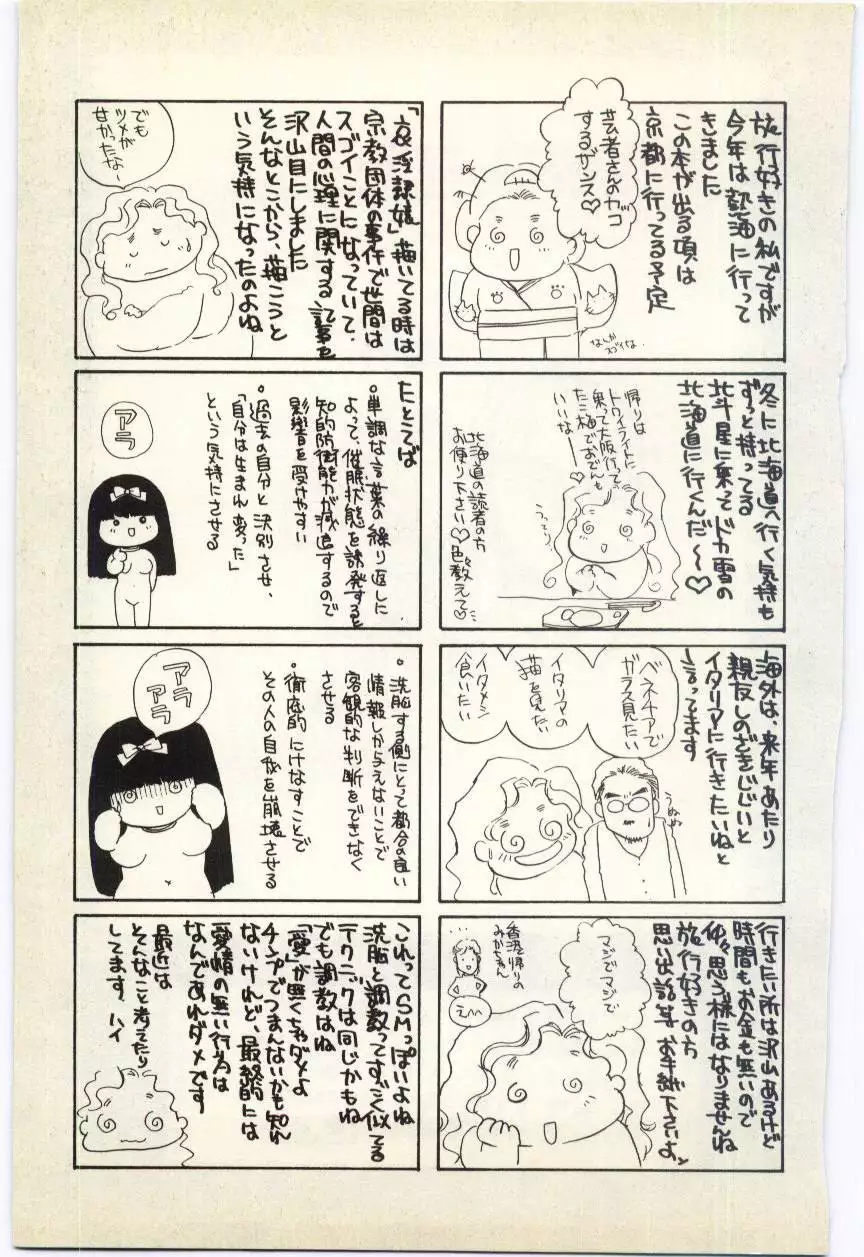 旅行好きの私ですが
今年は熱海に行って
きました
この本が出る頃は
京都に行ってる予定
芸者さんのカッコ
するザンス♡
なんか
スゴイな
冬に北海道へ行く気持も
ずっと持ってる
北斗星に乗ってドカ雪の
北海道に行くんだ〜♡
帰りは
トワイライトに
乗って大阪行って
たこ梅でおでんも
いいな〜♡
うっとり
北海道の読者の方
お便り下さい♡色々教えて♡
海外は、来年あたり
親友しのざきじじいと
イタリアに行きたいねと
言ってます
ベネチアで
ガラス見たい
イタリアの
猫を見たい
イタメシ
食いたい
うぬぬ
行きたい所は沢山あるけど
時間もお金も無いので
仲々思う様にはなりませんね
旅行好きの方
思い出話等お手紙下さいよ
マジでマジで
香港帰りの
みかちゃん
えへへ
「哀淫隷嬢」描いてる時は
宗教団体の事件で世間は
スゴイことになっていて、
人間の心理に関する記事を
沢山目にしました
そんなとこから、描こうと
いう気持になったのよね
でも
ツメが
甘かったな〜
たとえば
・単調な言葉の繰り返しに
よって、催眠状態を誘発すると
知的防御能力が減退するので
影響を受けやすい
・過去の自分と決別させ、
「自分は生まれ変った」
という気持にさせる
アラ
・洗脳する側にとって都合の良い
情報しか与えないことで
客観的な判断をできなく
させる
・徹底的にけなすことで
その人の自我を崩壊させる
アラ
アラ
これってSMっぽいよね
洗脳と調教ってすごく似てる
テクニックは同じかもね
でも調教はね
「愛」が無くちゃダメよ
チンプでつまんないかも知れ
ないけれど、最終的には
愛情の無い行為は
なんであれダメです
最近は
そんなこと考えたり
してます、ハイ